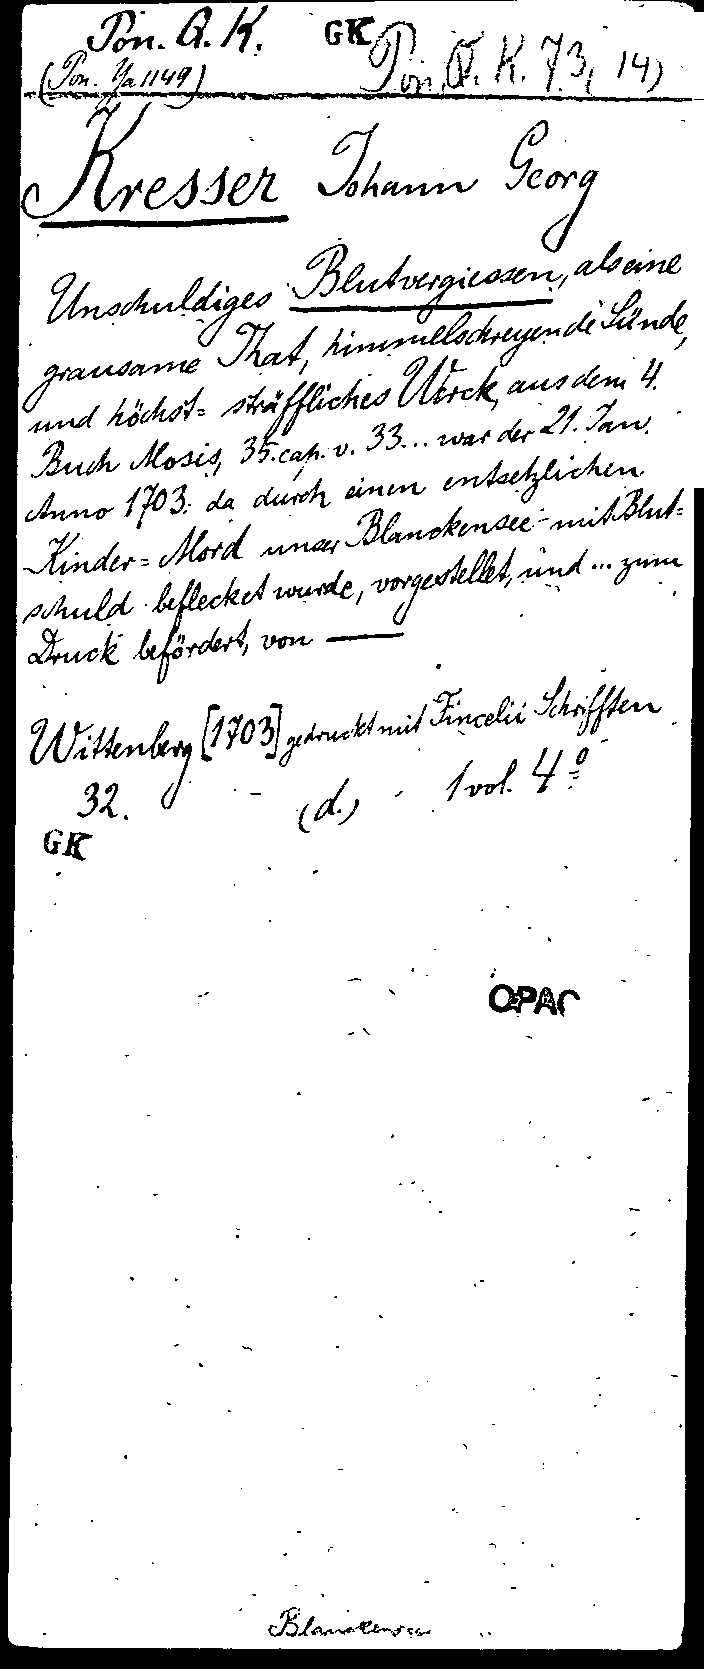 Pon. Q. K. GK Pon. Q. K. 73, 14)
(Pon. Ya 1149)
Kresser Johann Georg
Unschuldiges Blutvergiessen, als eine
grausame That, himmelschreyende Sünde,
und höchst= sträffliches Werck, aus dem 4.
Buch Mosis, 35. cap. v. 33... war der 21. Jan.
Anno 1703. da durch einen entsetzlichen
Kinder=Mord unser Blanckensee mit Blut=
schuld beflecket wurde, vorgestellet, und ... zum
Druck befördert, von —
Wittenberg [1703] gedruckt mit Fincelii Schrifften
32. (d.) 1 vol. 4°
GK
OPAC
Blanckensee